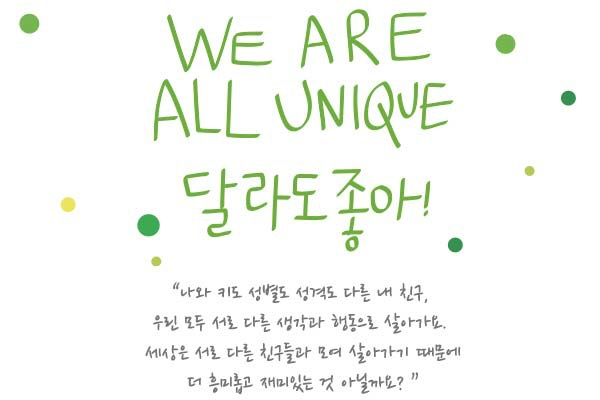 WE ARE
ALL UNIQUE
달라도좋아!
“나와 키도 성별도 성격도 다른 내 친구,
우린 모두 서로 다른 생각과 행동으로 살아가요.
세상은 서로 다른 친구들과 모여 살아가기 때문에
더 흥미롭고 재미있는 것 아닐까요? ”